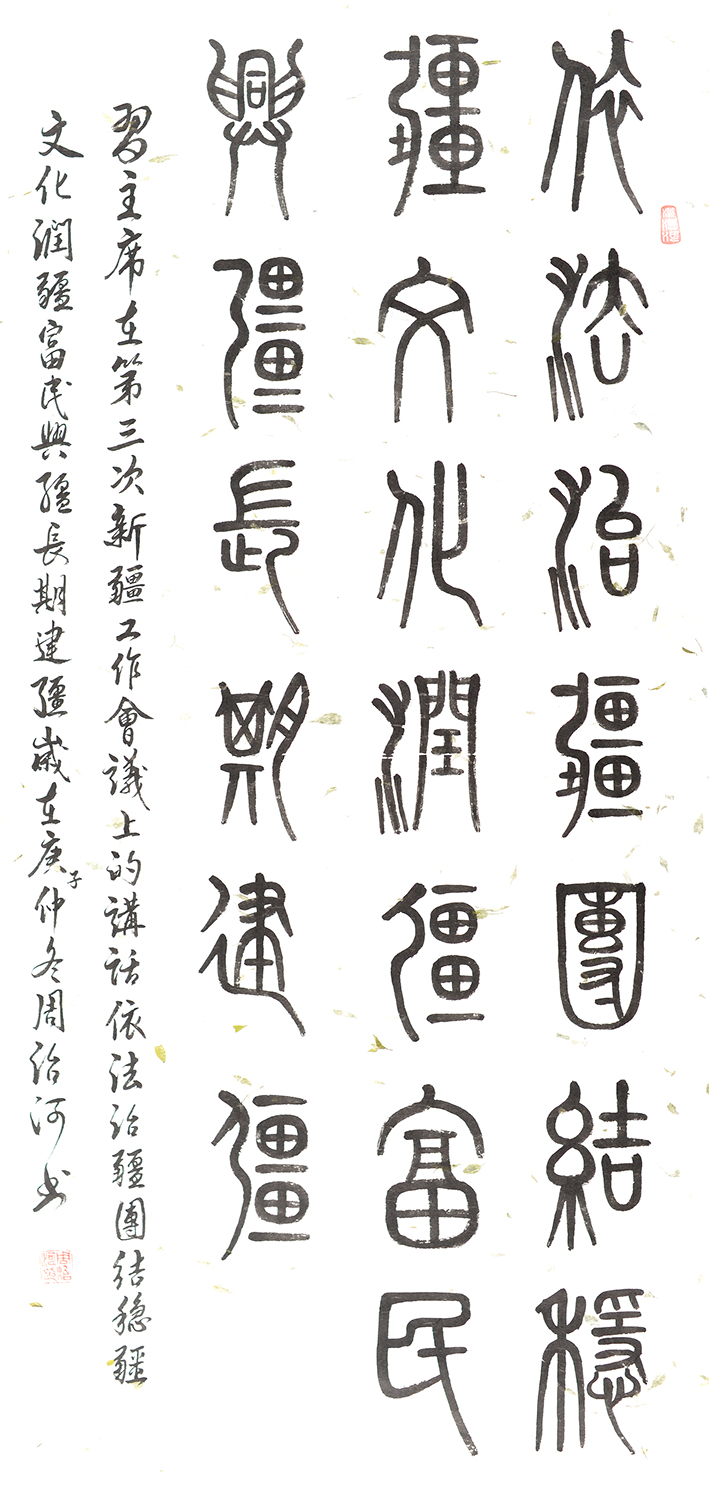 依法治疆團結穩
疆文化潤疆富民
興疆長期建疆
習主席在第三次新疆工作會議上的講話依法治疆團結穩疆
文化潤疆富民興疆長期建疆歲在庚子仲冬周治河书